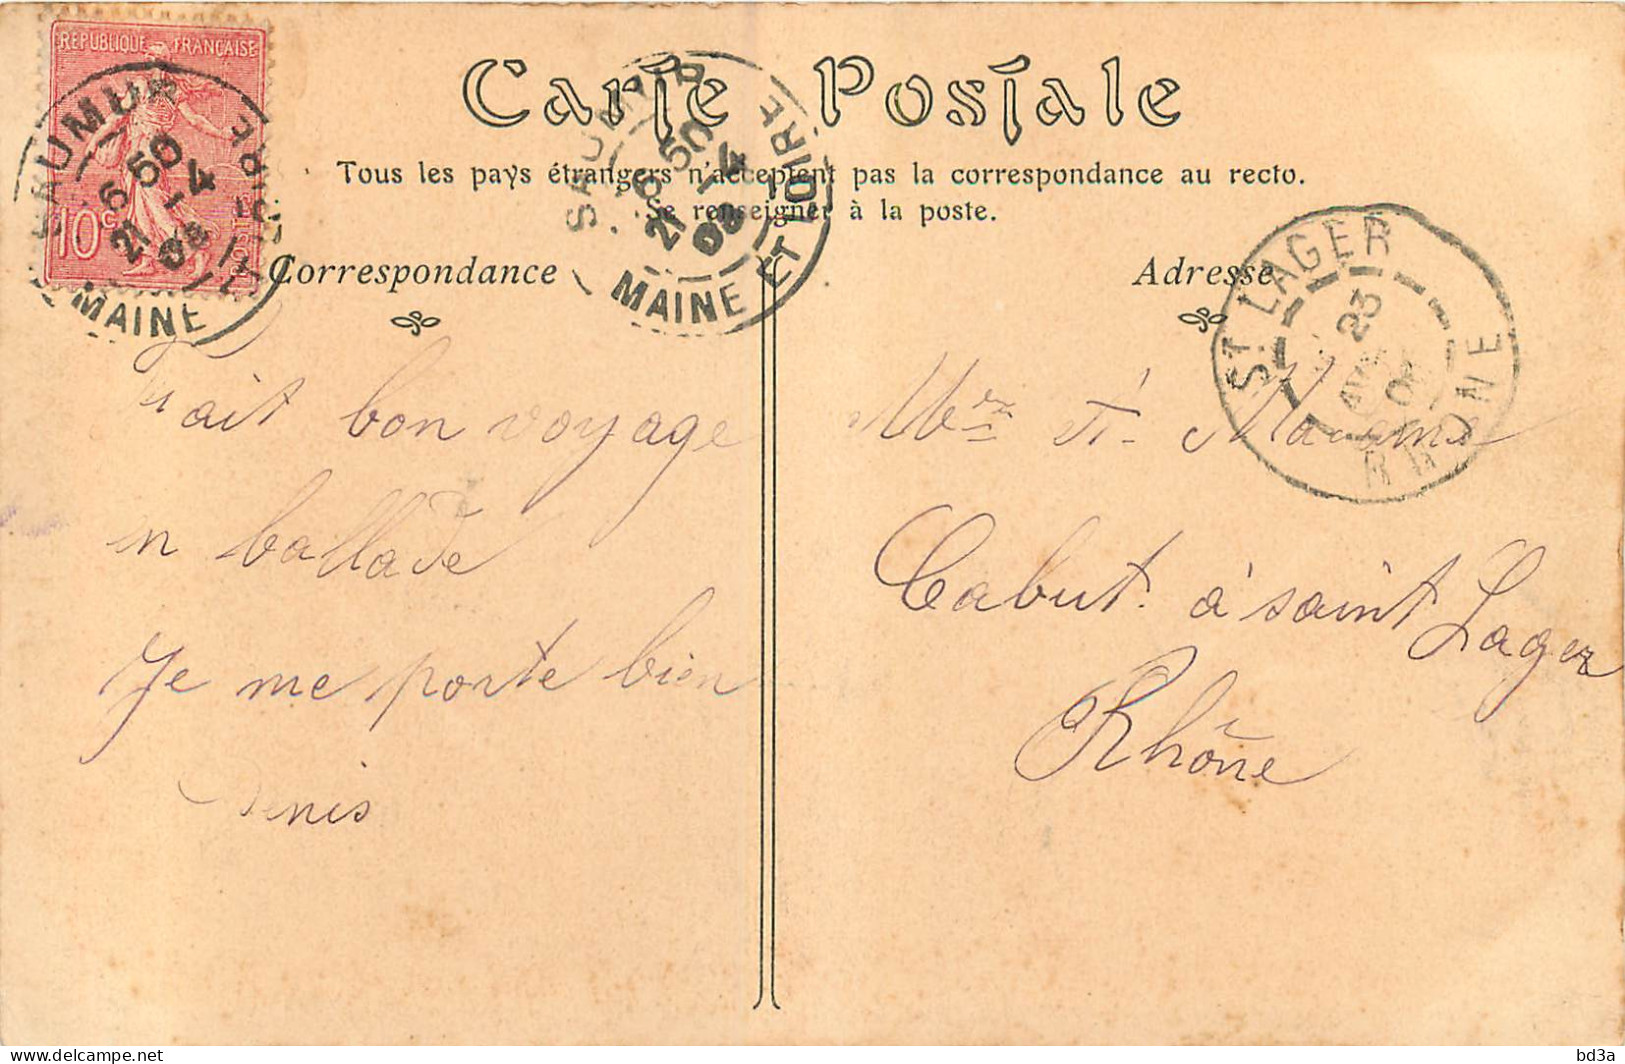 REPUBLIQUE FRANÇAISE
10c
POSTES
SAUMUR
6 50
21 - 4
08
MAINE ET LOIRE
Carte Postale
SAUMUR
6 50
21 - 4
08
MAINE ET LOIRE
Tous les pays étrangers n'acceptent pas la correspondance au recto.
Se renseigner à la poste.
Correspondance
Adresse
ST LAGER
23
08
RHONE
Fait bon voyage
en ballade
Je me porte bien
Denis
Cabut. à saint Lager
Rhône
bd3a